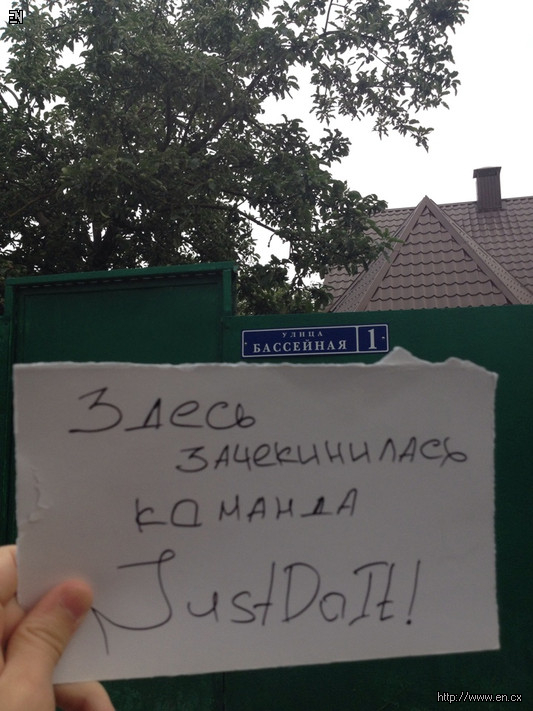 EN
УЛИЦА
БАССЕЙНАЯ 1
Здесь
зачекинилась
команда
JustDoIt!
http://www.en.cx